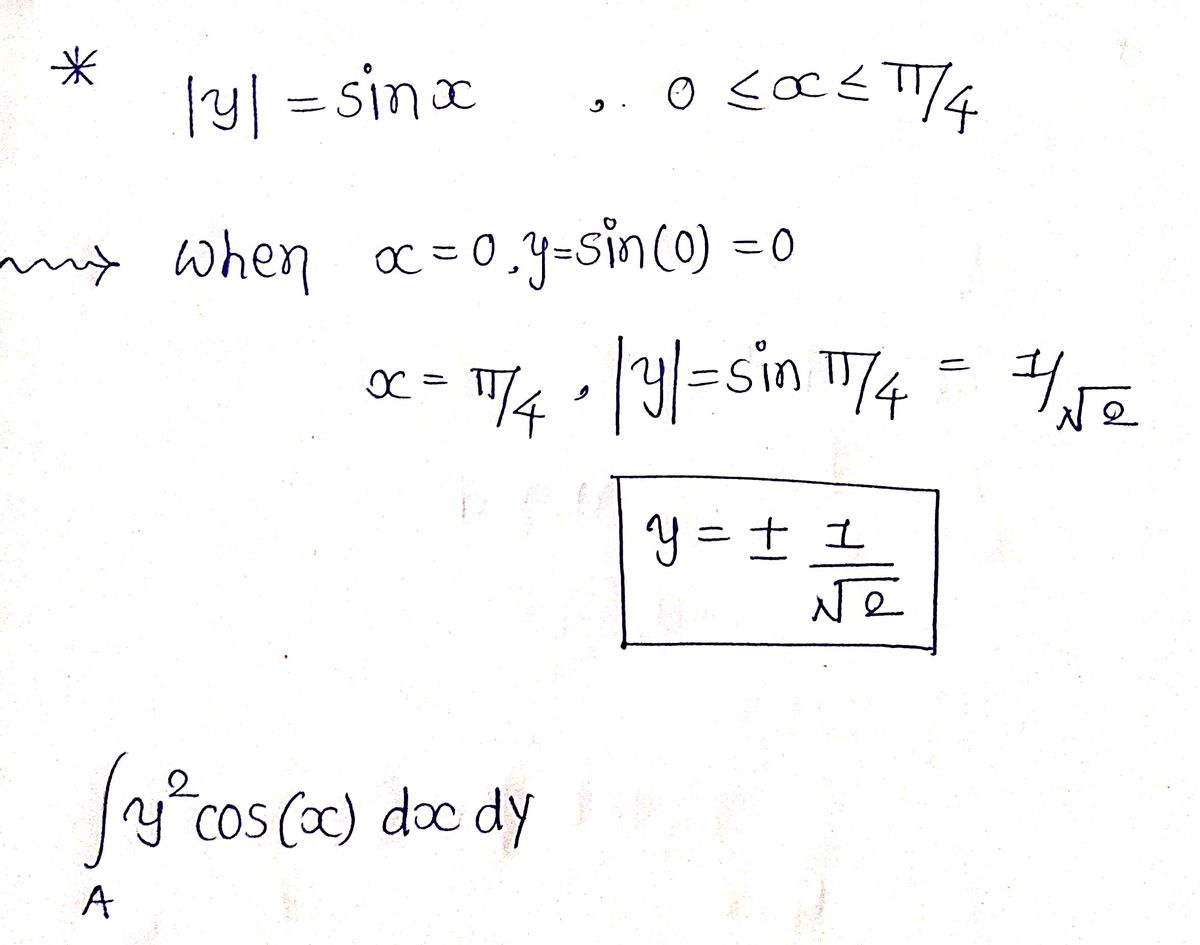 * |y| = sin x , 0 ≤ x ≤ π/4
⇝ when x = 0, y = sin(0) = 0
x = π/4, |y| = sin π/4 = 1/√2
y = ± 1/√2
∫_A y² cos(x) dx dy